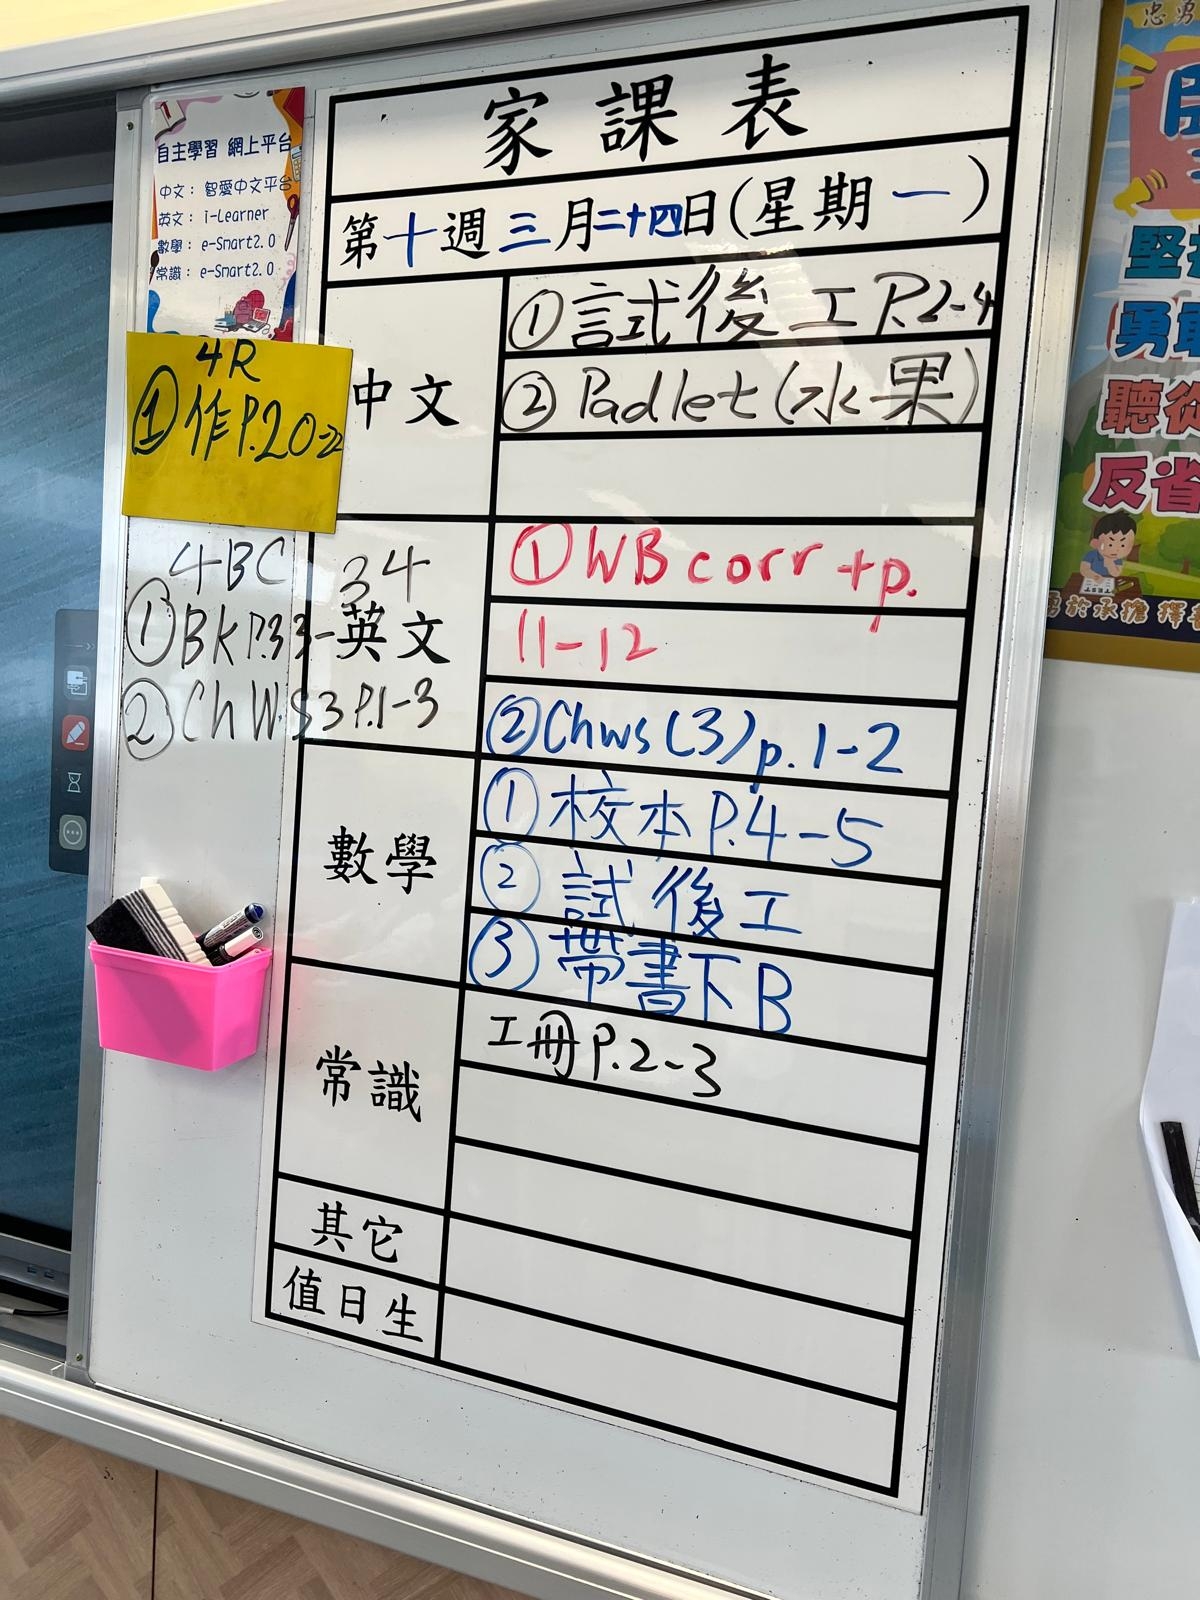 家課表
第十週三月二十四日(星期一)
中文
①試後工P.2-4
②Padlet(水果)
英文
①WB corr +p.
11-12
②Chws(3)p.1-2
數學
①校本P.4-5
②試後工
③帶書下B
常識
工冊P.2-3
其它
值日生
自主學習 網上平台
中文：智愛中文平台
英文：i-Learner
數學：e-Smart2.0
常識：e-Smart2.0
4R
①作P.20-22
4BC
①BKP.33-34
②ChWS3P.1-3
忠勇
堅
勇敢
聽從
反省
勇於承擔